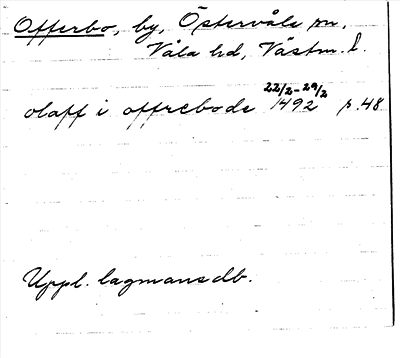 Offerbo, by, Östervåla sn,
Våla hd, Västm. l.
22/2-29/2
olaff i offrebode 1492 p. 48
Uppl. lagmansdb.